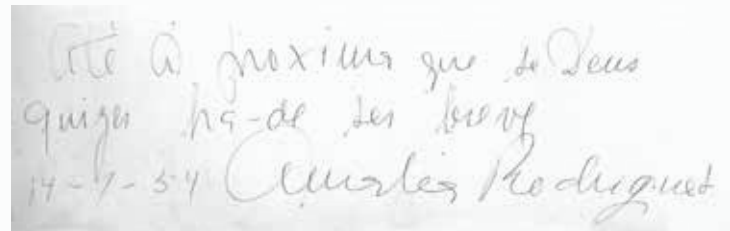 Até á proxima que se Deus
quizer há-de ser breve
14-7-54 Amalia Rodrigues